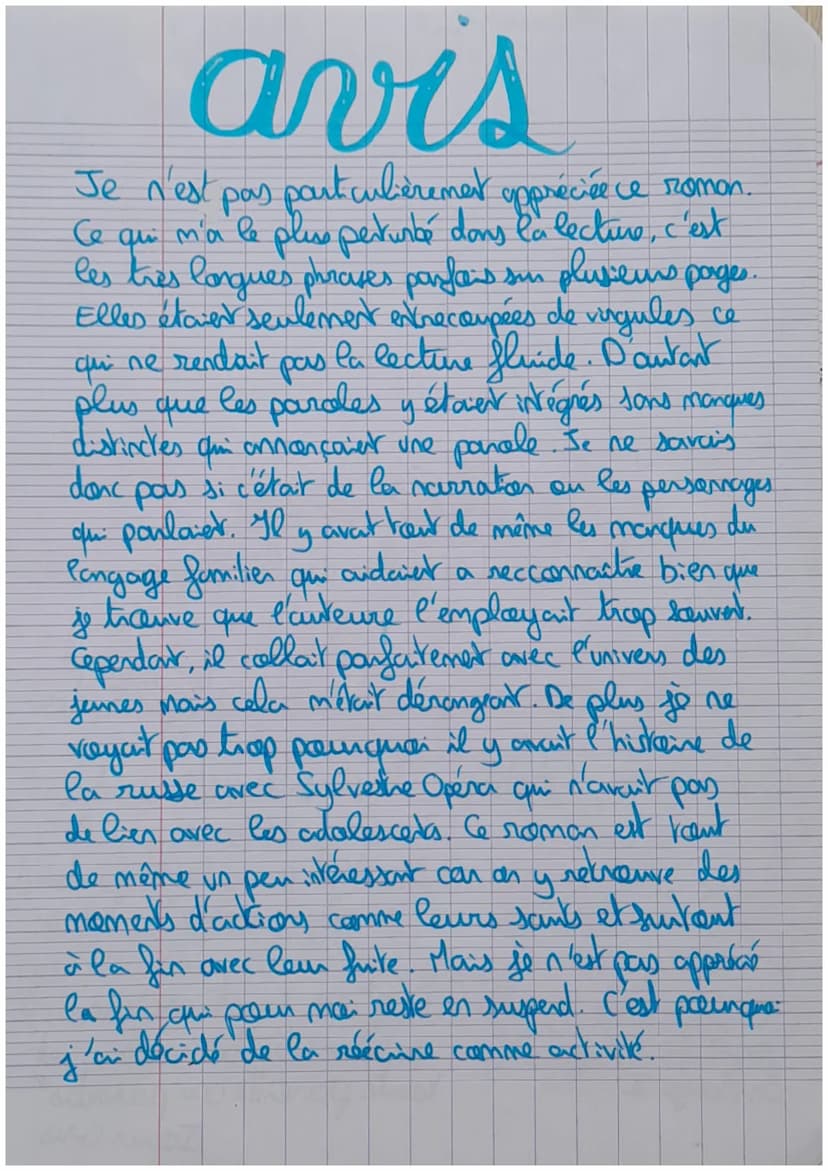 avis
Je n'est pas particulièrement appréciée ce roman.
Ce qui m'a le plus perturbé dans la lecture, c'est
les très longues phrases parfois sur plusieurs pages.
Elles étaient seulement entrecoupées de virgules ce
qui ne rendait pas la lecture fluide. D'autant
plus que les paroles y étaient intégrés sans marques
distinctes qui annonçaient une parole. Je ne savais
donc pas si c'était de la narration ou les personnages
qui parlaient. Il y avait tout de même les marques du
langage familier qui aidaient a reconnaitre bien que
je trouve que l'auteure l'employait trop souvent.
Cependant, il collait parfaitement avec l'univers des
jeunes mais cela m'était dérangeant. De plus je ne
voyait pas trop pourquoi il y avait l'histoire de
la russe avec Sylvestre Opéra qui n'avait pas
de lien avec les adolescents. Ce roman est tout
de même un peu intéressant car on y retrouve des
moments d'actions comme leurs sauts et surtout
à la fin avec leur fuite. Mais je n'est pas apprécié
la fin qui pour moi reste en suspend. C'est pourquoi
j'ai décidé de la réécrire comme activité.